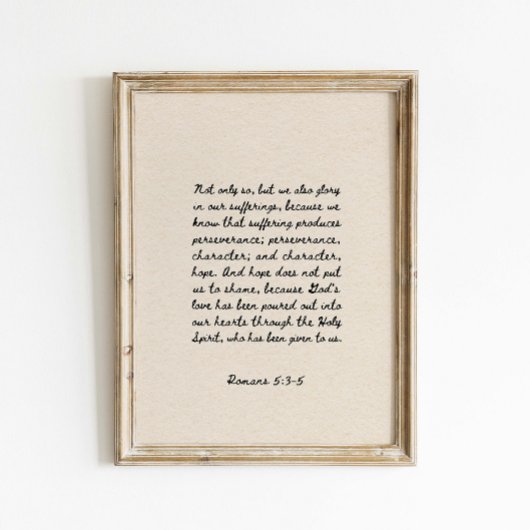 Not only so, but we also glory
in our sufferings, because we
know that suffering produces
perseverance; perseverance,
character; and character,
hope. And hope does not put
us to shame, because God's
love has been poured out into
our hearts through the Holy
Spirit, who has been given to us.
Romans 5:3-5